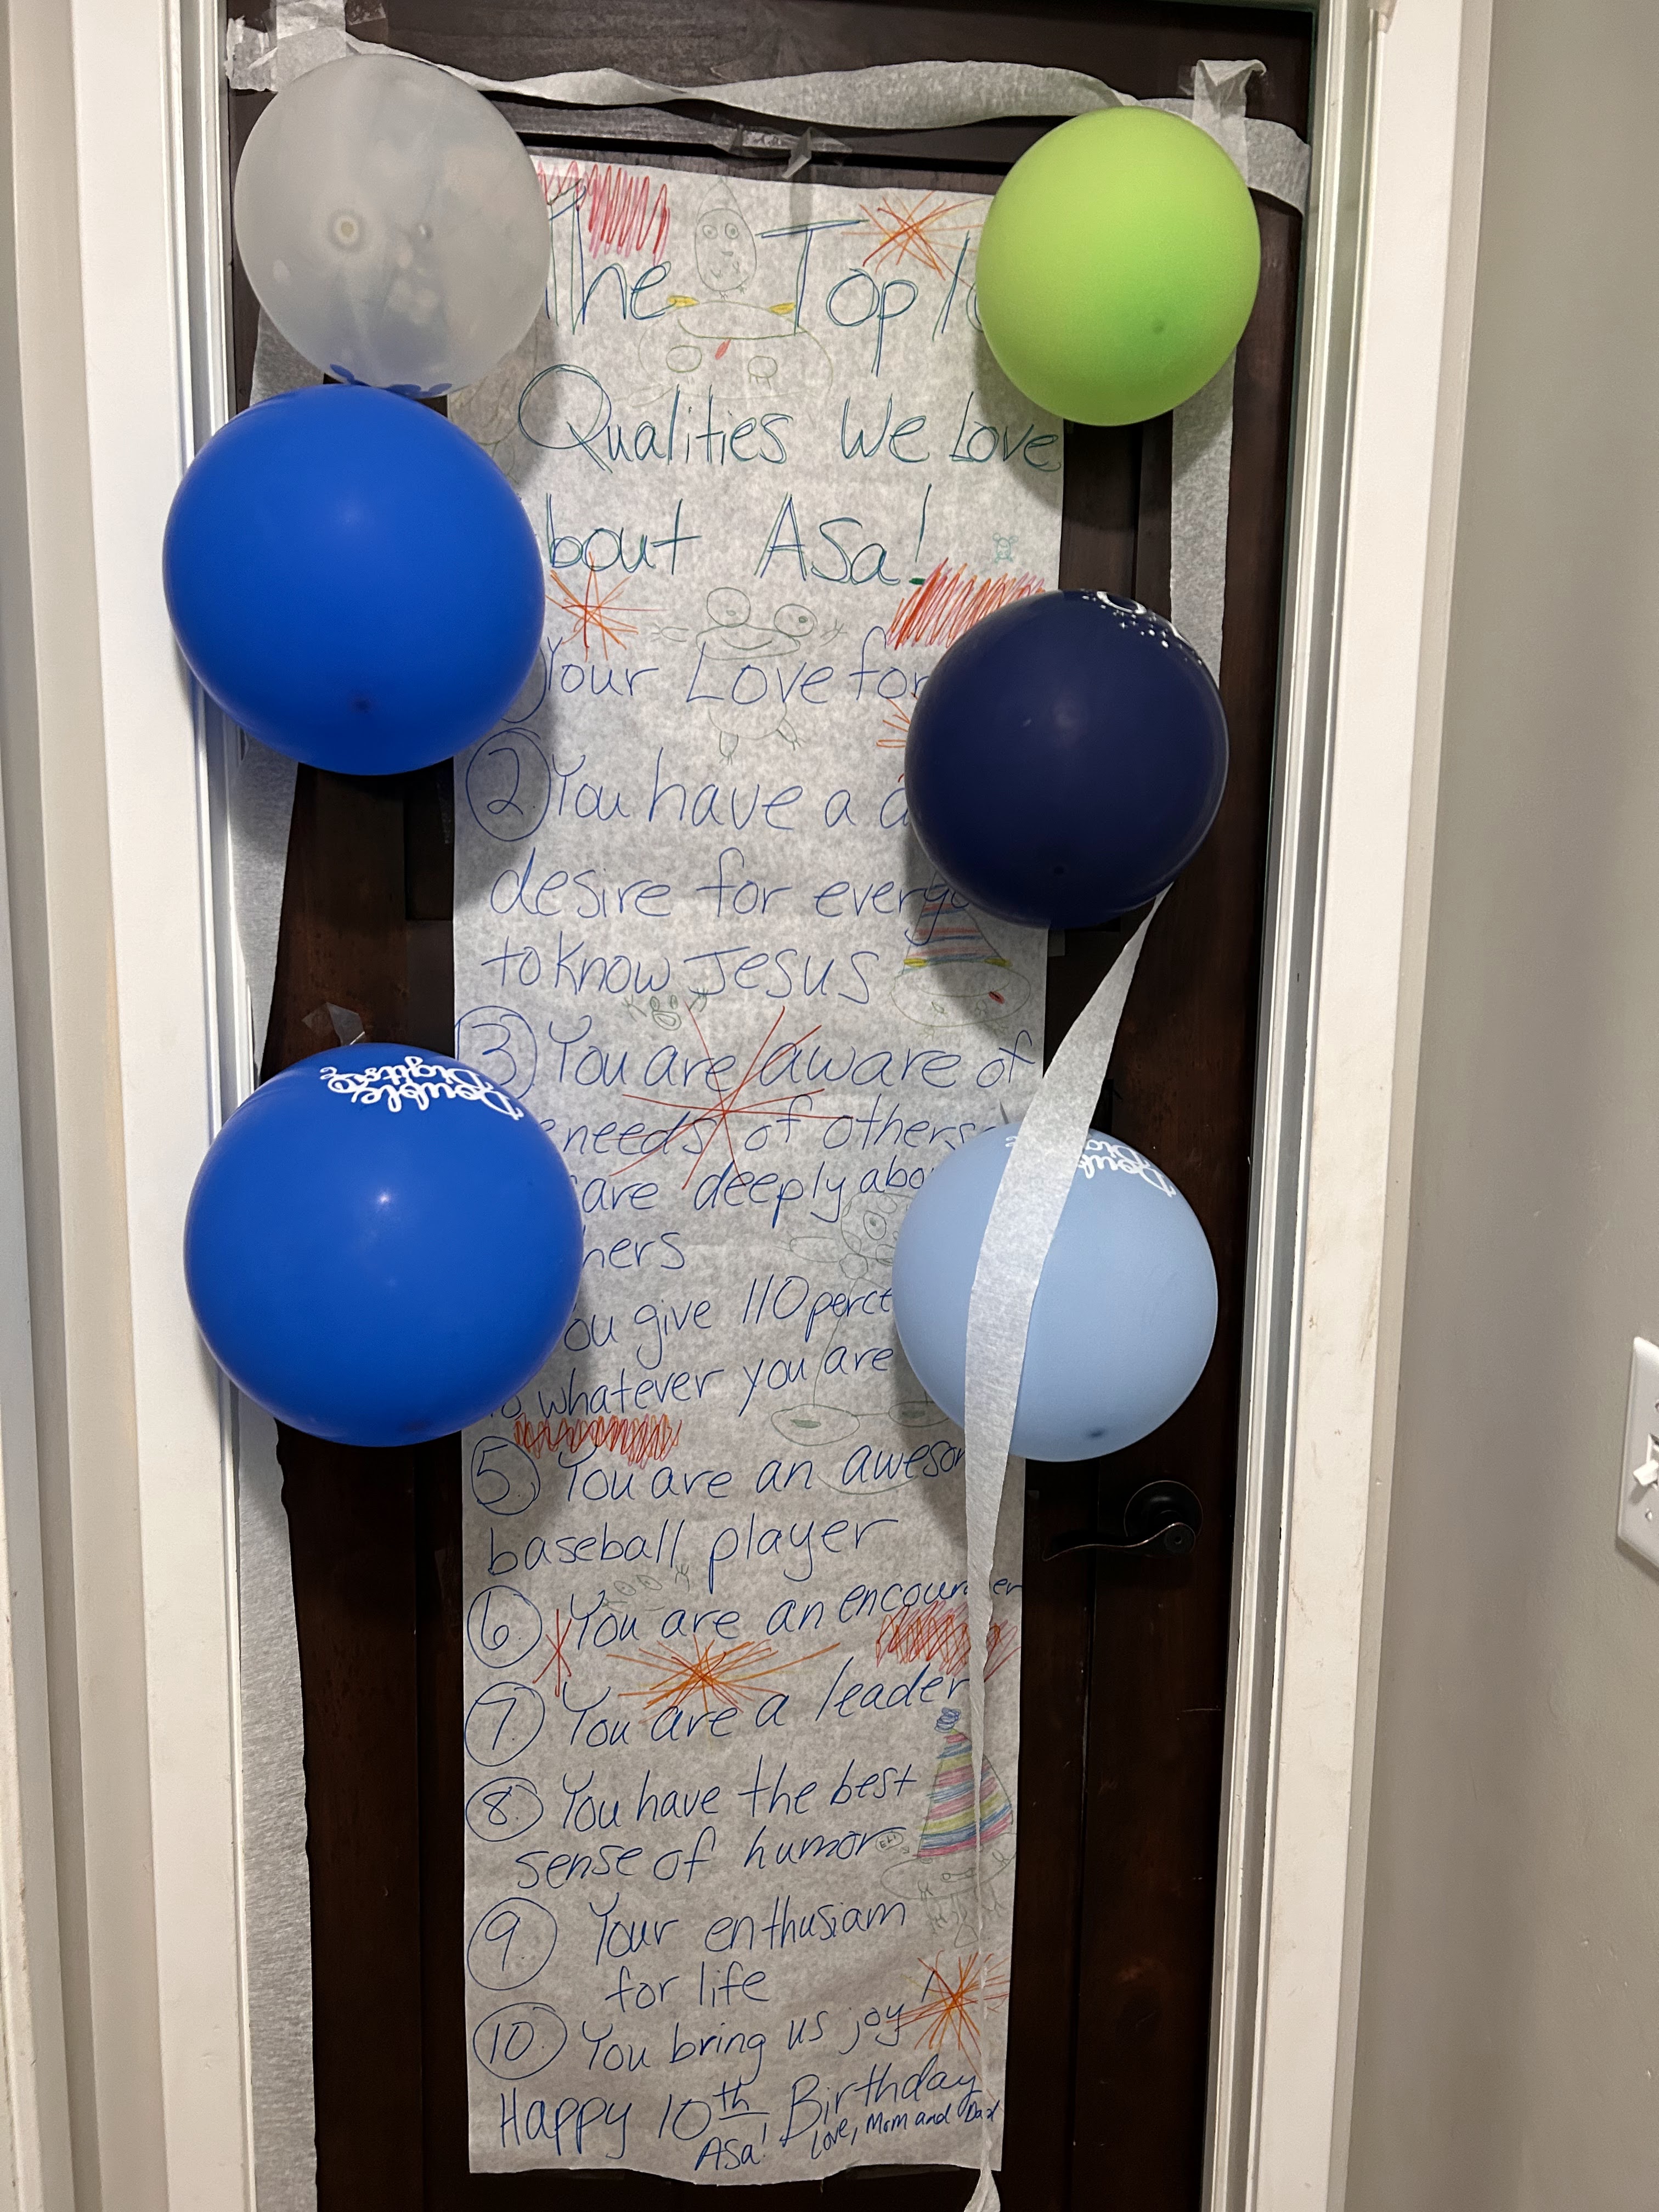 The Top
Qualities We Love
bout Asa!
Your Love for
2. You have a
desire for every
to know Jesus
3. You are aware of
needs of others
care deeply abo
hers
ou give 110 perce
whatever you are
5. You are an aweso
baseball player
6. You are an encour er
7. You are a leader
8. You have the best
sense of humor
9. Your enthusiam
for life
10. You bring us joy
Happy 10th Birthday
Asa! Love, Mom and Dad
Double
Digits
Doub
Dig